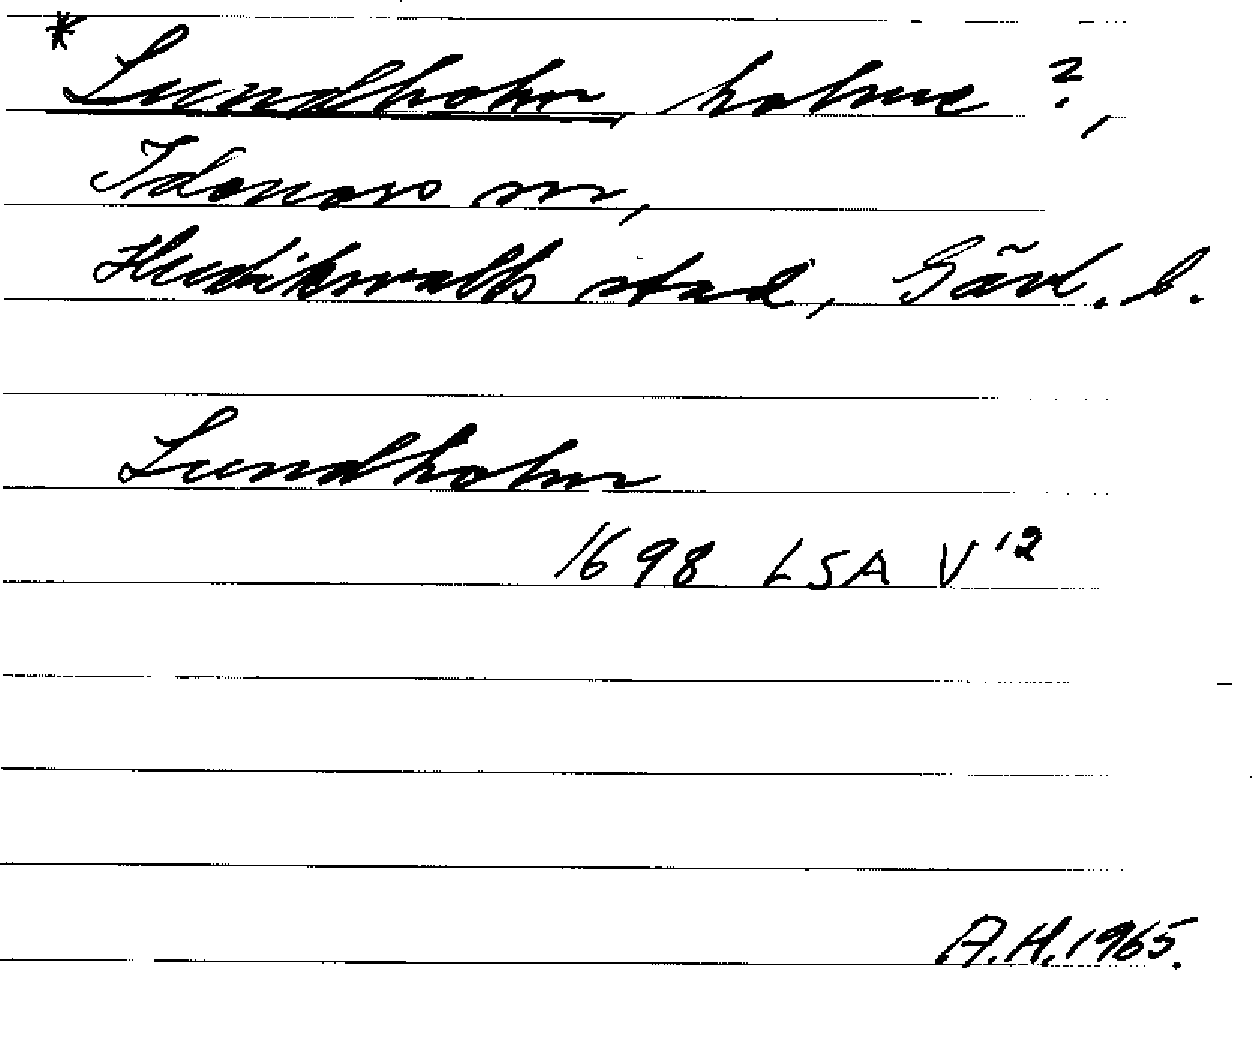 * Lundholm, holme ?,
Idenors sn,
Hudiksvalls stad, Gävl. l.
Lundholm
1698 LSA V 12
A.H. 1965.